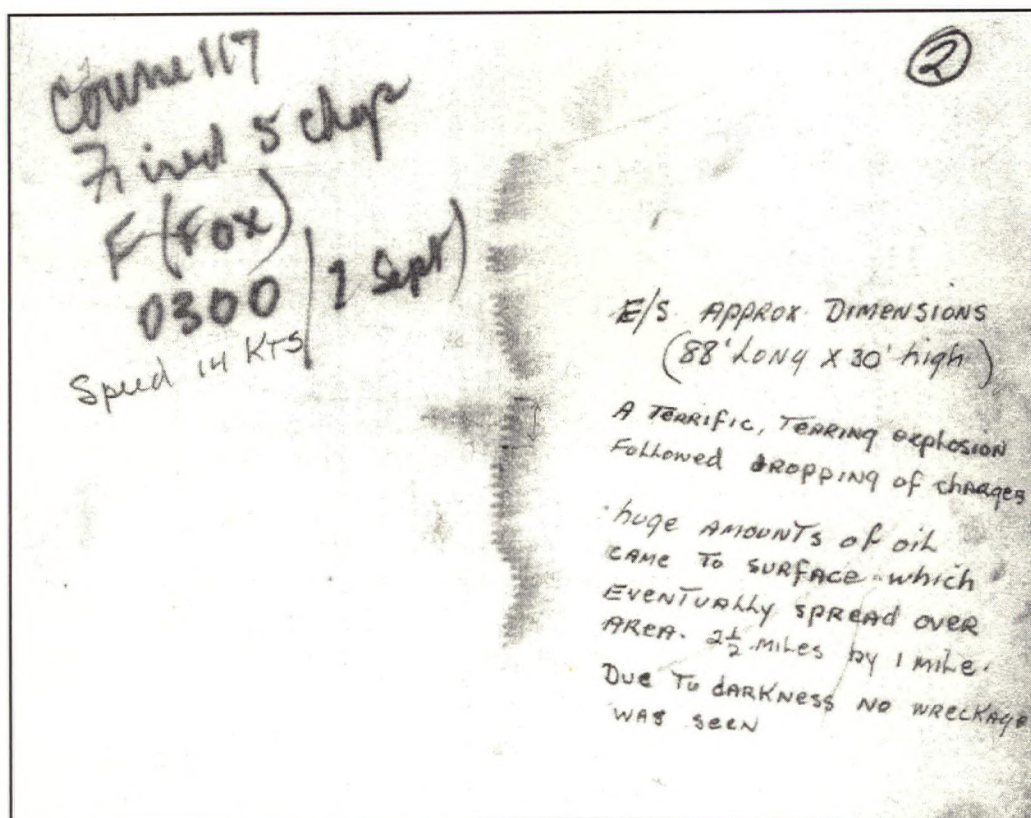 ②
Course 117
Fired 5 chgs
F (Fox)
0300 (1 Sept)
Speed 14 KTS
E/S APPROX DIMENSIONS
(88' LONG X 30' high)
A TERRIFIC, TEARING explosion
Followed DROPPING of chARges
huge AMOUNTS of oil
CAME To SURFACE which
EVENTUALLY SPREAD OVER
AREA. 2½ MILES by 1 MILE.
Due To dARKNESS NO WRECKAge
WAS SEEN